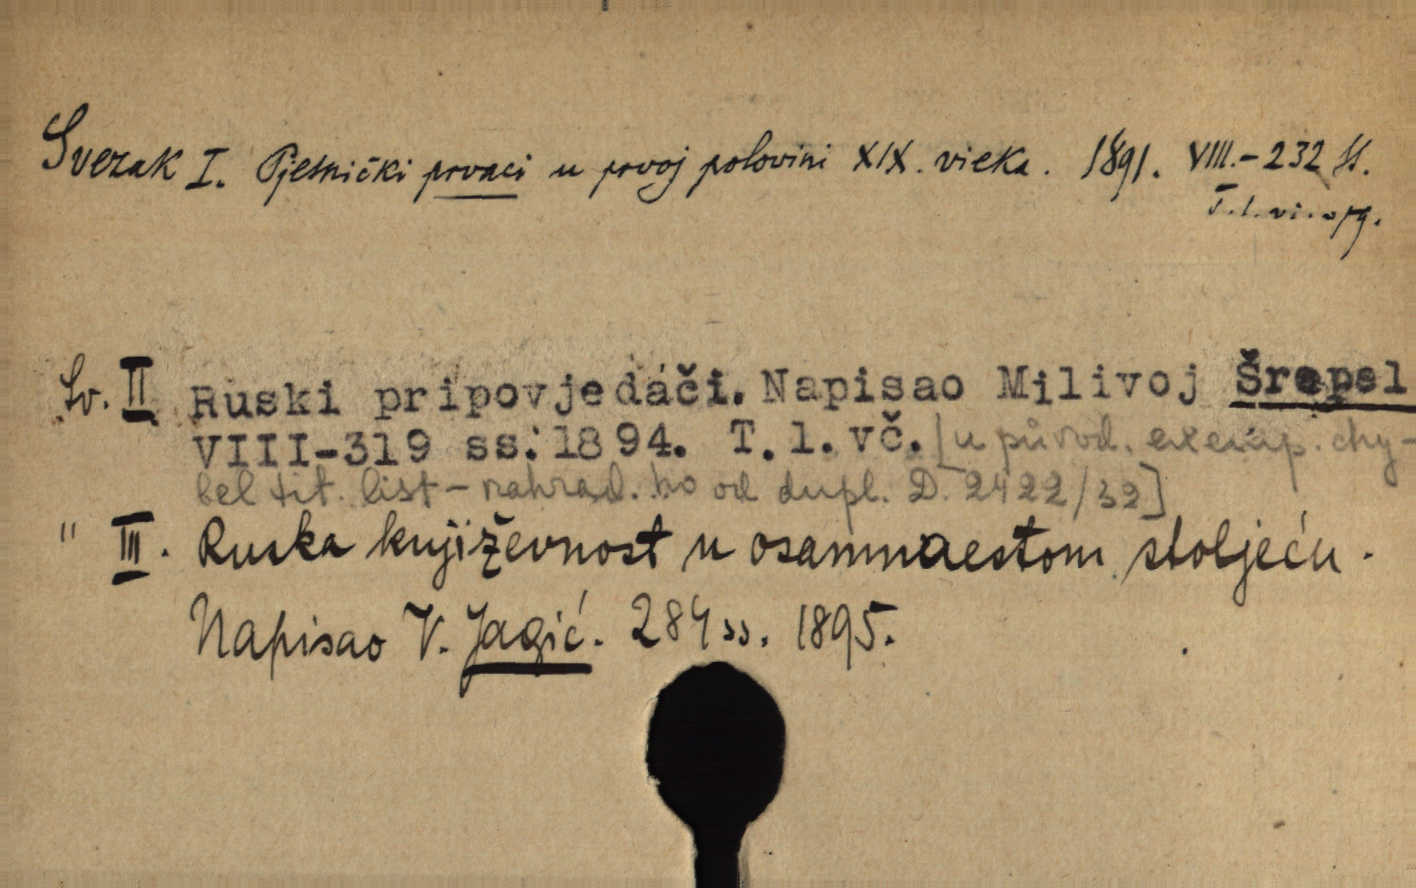 Svezak I. Pjesnički prvaci u prvoj polovini XIX. vieka. 1891. VIII.-232 st.
Sv. II Ruski pripovjedáči. Napisao Milivoj Šrepel
VIII-319 ss. 1894. T. l. vč. [u původ. exemp. chy-
bel tit. list - nahrad. ho od dupl. D. 2422/32]
" III. Ruska književnost u osamnaestom stoljeću.
Napisao V. Jagić. 284 ss. 1895.